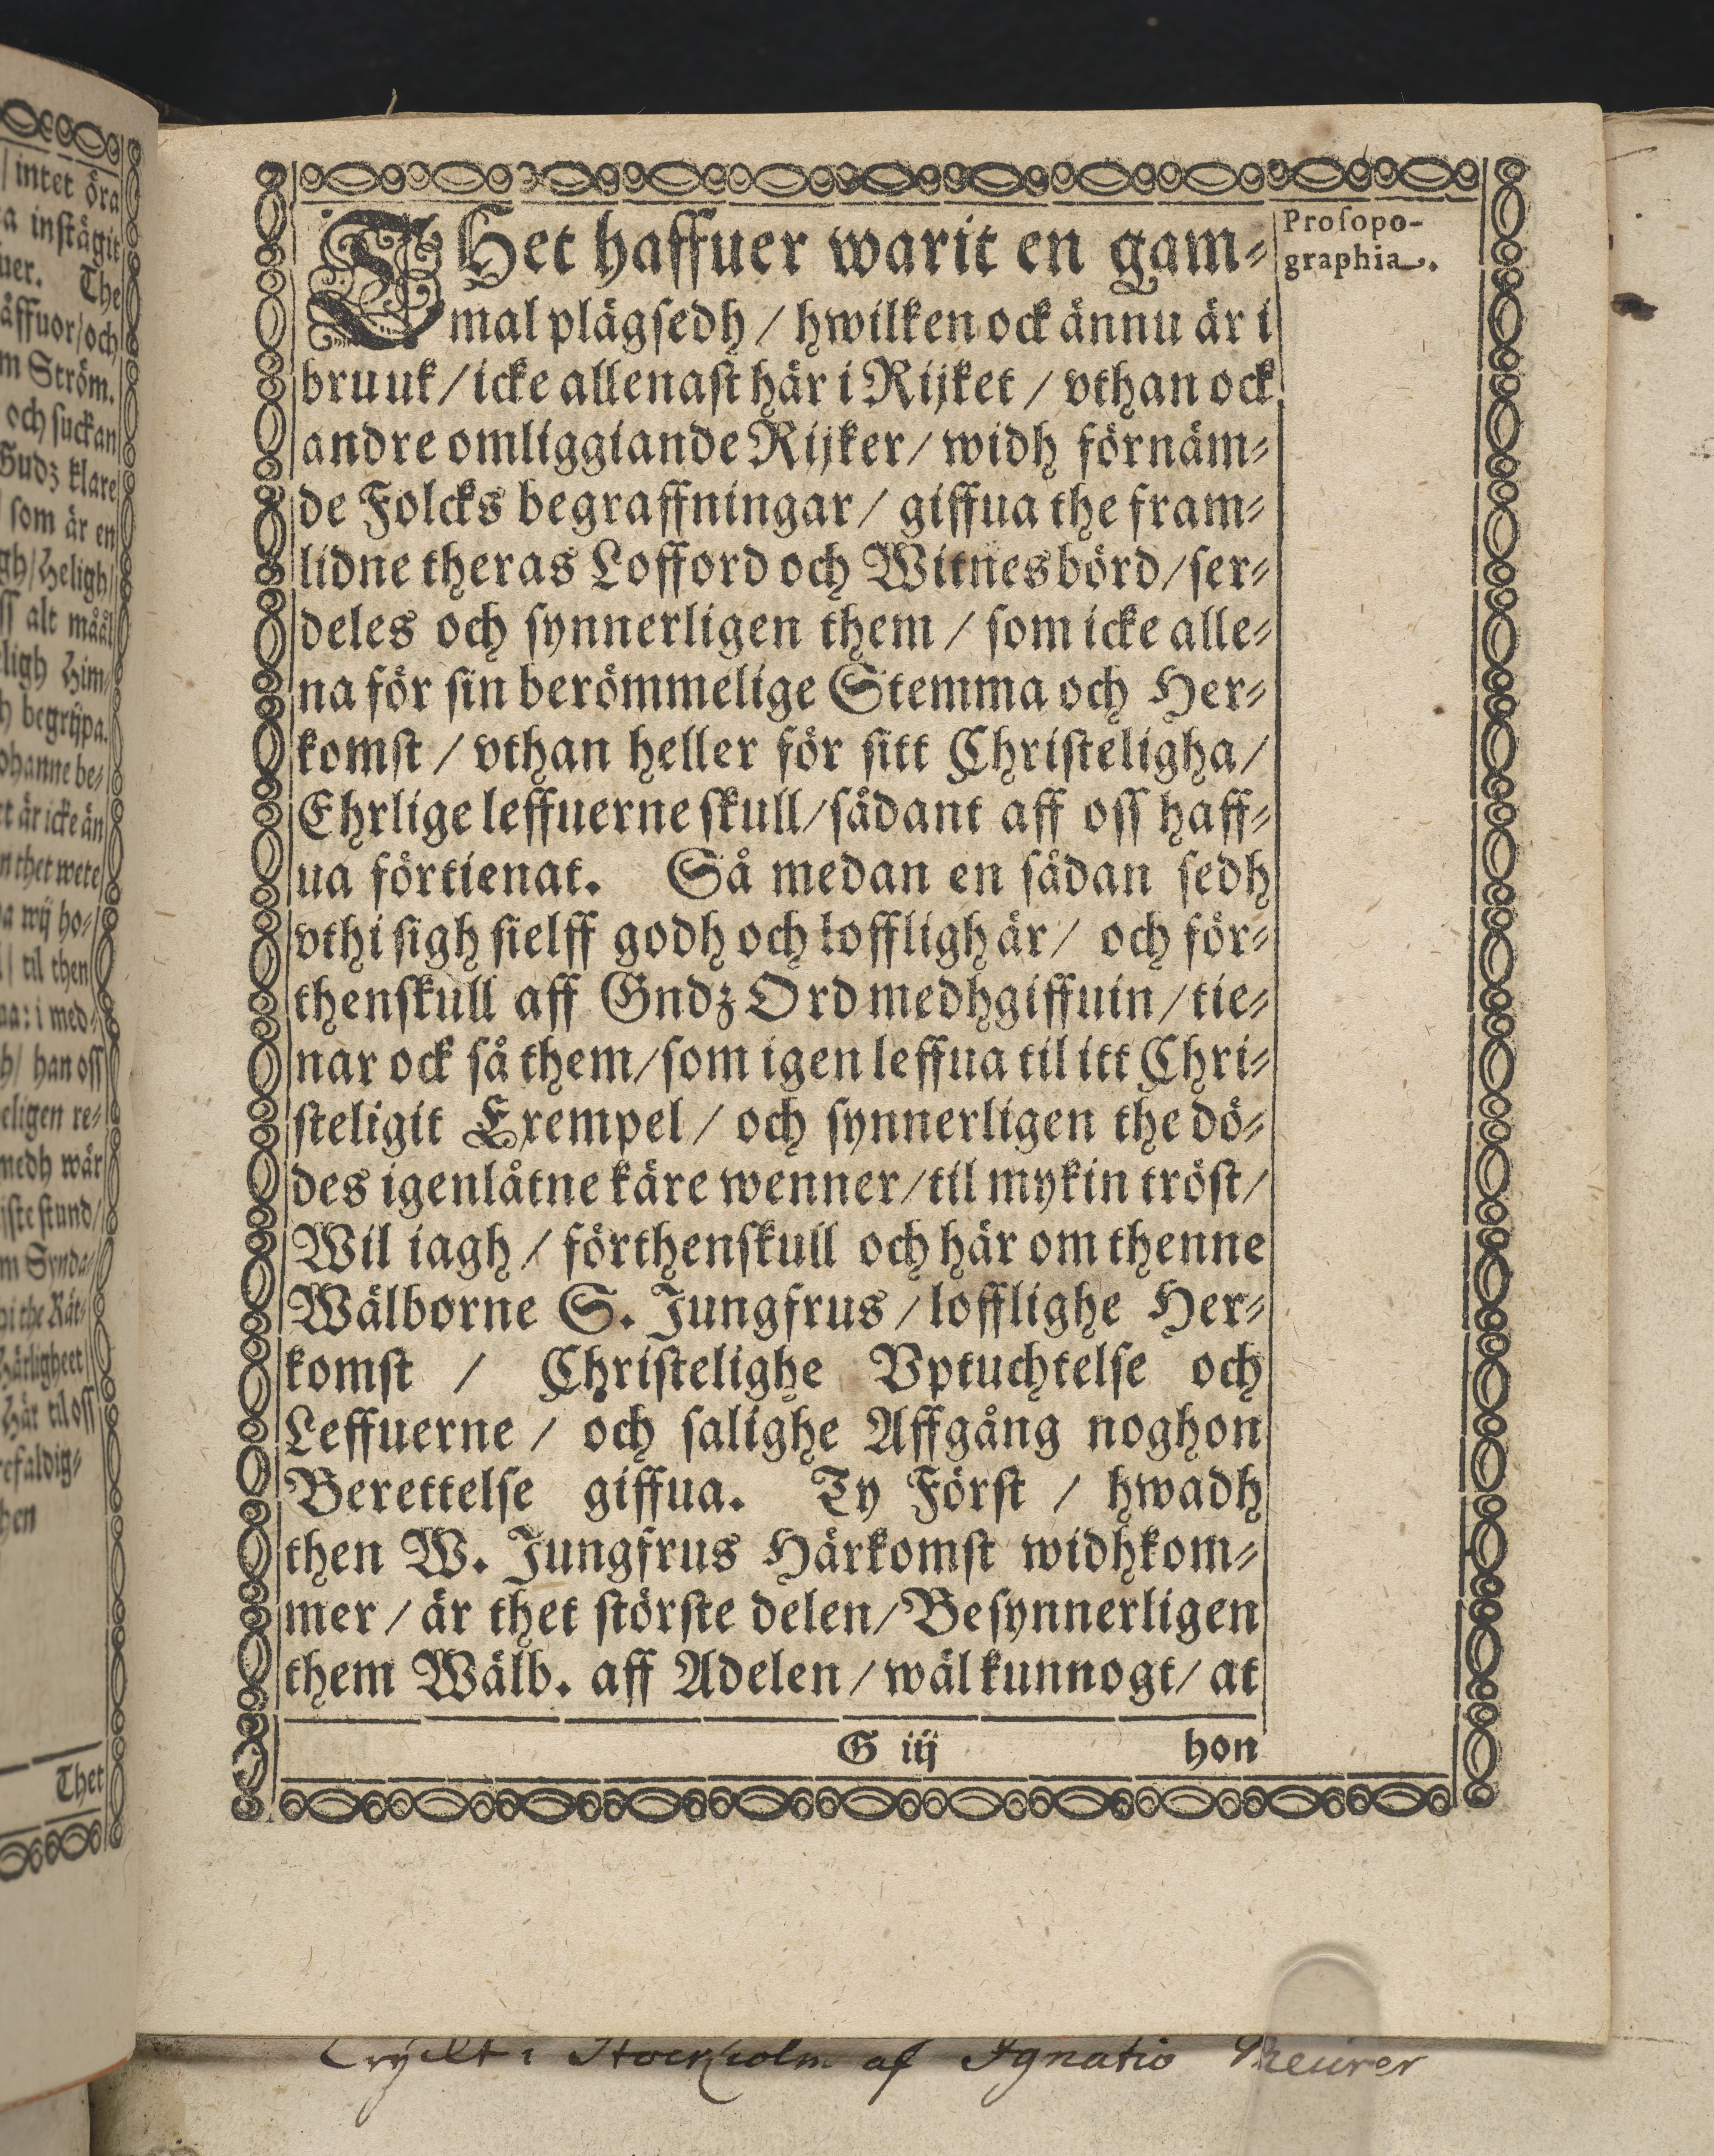 intet öra
a instågit
uer. The
åffuor/och
m Ström.
och suckan
Gudz klare
som är en
gh/Heligh/
ss alt måål
ligh Him/
h begrijpa.
ohanne be⸗
tt är icke än
n thet wete
a wij ho⸗
til then
ua: i med⸗
h/ han oss
eligen re⸗
medh wår
ijste stund/
m Synda/
pi the Rät/
Härligheet
Här til oss
refaldig⸗
hen
Thet
THet haffuer warit en gam⸗
mal plägsedh / hwilken ock ännu är i
bruuk / icke allenast här i Rijket / vthan ock
andre omliggiande Rijker / widh förnäm⸗
de Folcks begraffningar / giffua the fram⸗
lidne theras Lofford och Witnesbörd / ser⸗
deles och synnerligen them / som icke alle⸗
na för sin berömmelige Stemma och Her⸗
komst / vthan heller för sitt Christeligha /
Ehrlige leffuerne skull / sådant aff oss haff⸗
ua förtienat. Så medan en sådan sedh
vthi sigh sielff godh och lofflígh är / och för⸗
thenskull aff Gndz Ord medhgiffuin / tie⸗
nar ock så them / som igen leffua til itt Chri⸗
steligit Exempel / och synnerligen the dö⸗
des igenlåtne käre wenner / til mykin tröst /
Wil iagh / förthenskull och här om thenne
Wälborne S. Jungfrus / lofflighe Her⸗
komst / Christelighe Vptuchtelse och
Leffuerne / och salighe Affgång noghon
Berettelse giffua. Ty Först / hwadh
then W. Jungfrus Härkomst widhkom⸗
mer / är thet störste delen / Besynnerligen
them Wälb. aff Adelen / wäl kunnogt / at
G iij hon
Prosopo-
graphia.
Tryckt i Stockholm af Ignatio Meurer